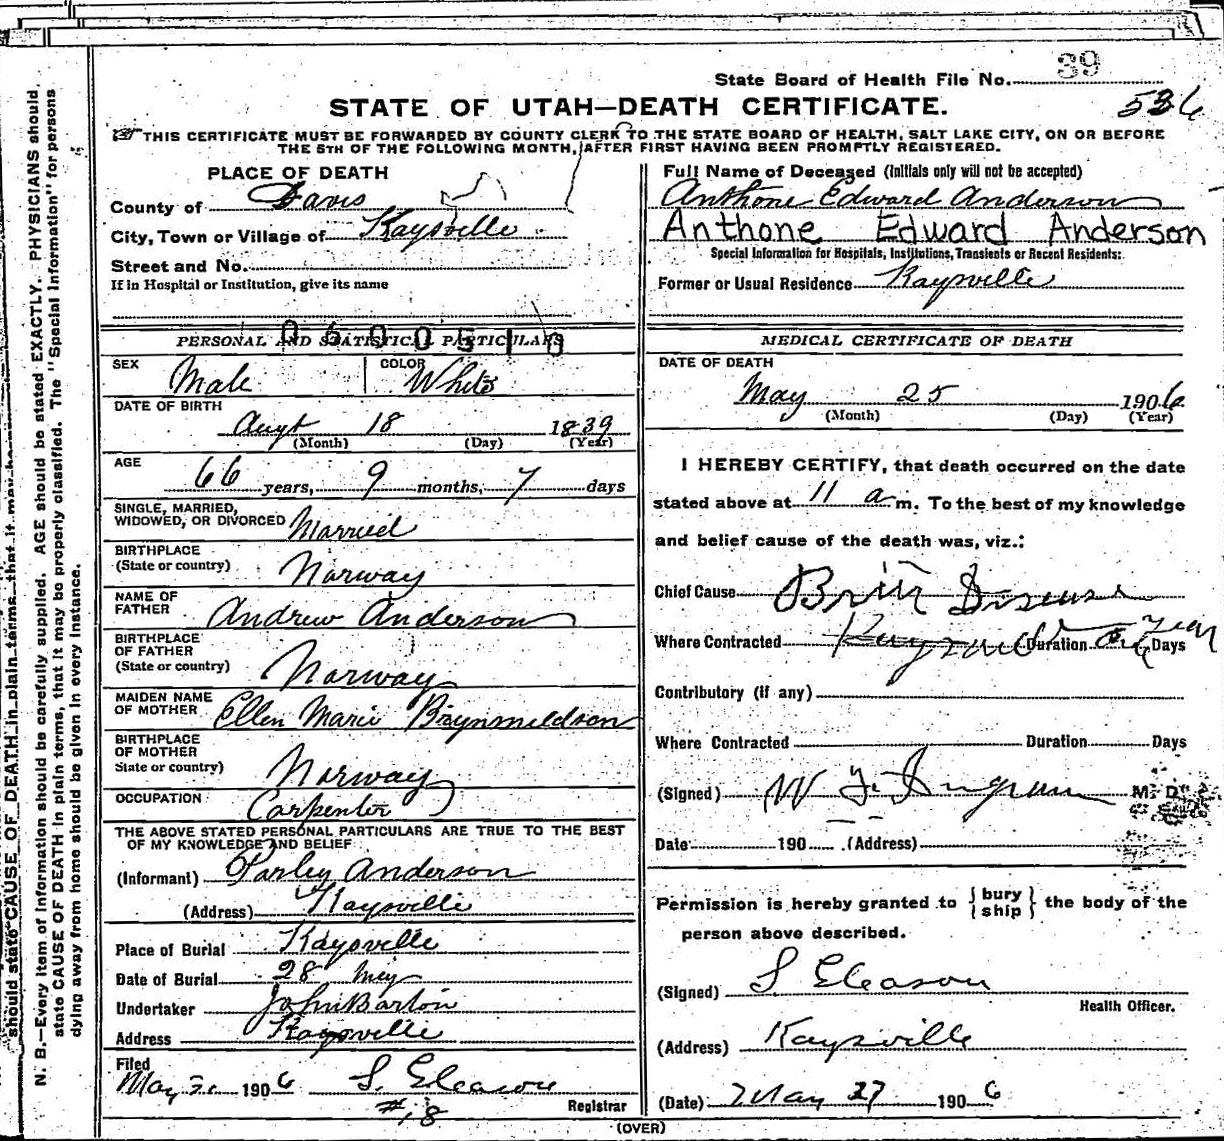 State Board of Health File No. 39
STATE OF UTAH—DEATH CERTIFICATE.
536
THIS CERTIFICATE MUST BE FORWARDED BY COUNTY CLERK TO THE STATE BOARD OF HEALTH, SALT LAKE CITY, ON OR BEFORE
THE 5TH OF THE FOLLOWING MONTH, AFTER FIRST HAVING BEEN PROMPTLY REGISTERED.
PLACE OF DEATH
County of Davis
City, Town or Village of Kaysville
Street and No.
If in Hospital or Institution, give its name
Full Name of Deceased (Initials only will not be accepted)
Anthone Edward Anderson
Anthone Edward Anderson
Special Information for Hospitals, Institutions, Transients or Recent Residents:
Former or Usual Residence Kaysville
PERSONAL AND STATISTICAL PARTICULARS
SEX Male COLOR White
DATE OF BIRTH
Augt 18 1839
(Month) (Day) (Year)
AGE
66 years, 9 months, 7 days
SINGLE, MARRIED,
WIDOWED, OR DIVORCED Married
BIRTHPLACE
(State or country) Norway
NAME OF
FATHER Andrew Anderson
BIRTHPLACE
OF FATHER
(State or country) Norway
MAIDEN NAME
OF MOTHER Ellen Marie Brynmeldson
BIRTHPLACE
OF MOTHER
State or country) Norway
OCCUPATION Carpenter
THE ABOVE STATED PERSONAL PARTICULARS ARE TRUE TO THE BEST
OF MY KNOWLEDGE AND BELIEF
(Informant) Parley Anderson
(Address) Kaysville
Place of Burial Kaysville
Date of Burial 28 May
Undertaker John Barton
Address Kaysville
Filed
May 1906 S. Gleason
#18 Registrar
MEDICAL CERTIFICATE OF DEATH
DATE OF DEATH
May 25 1906
(Month) (Day) (Year)
I HEREBY CERTIFY, that death occurred on the date
stated above at 11 a m. To the best of my knowledge
and belief cause of the death was, viz.:
Chief Cause Disease
Where Contracted Duration Days
Contributory (if any)
Where Contracted Duration Days
(Signed) W Ingram M. D.
Date 190 (Address)
Permission is hereby granted to {bury
ship} the body of the
person above described.
(Signed) S Gleason
Health Officer.
(Address) Kaysville
(Date) May 27 1906
(OVER)
N. B.—Every item of information should be carefully supplied. AGE should be stated EXACTLY. PHYSICIANS should
state CAUSE OF DEATH in plain terms, that it may be properly classified. The "Special Information" for persons
dying away from home should be given in every instance.
should state CAUSE OF DEATH in plain terms, that it may be